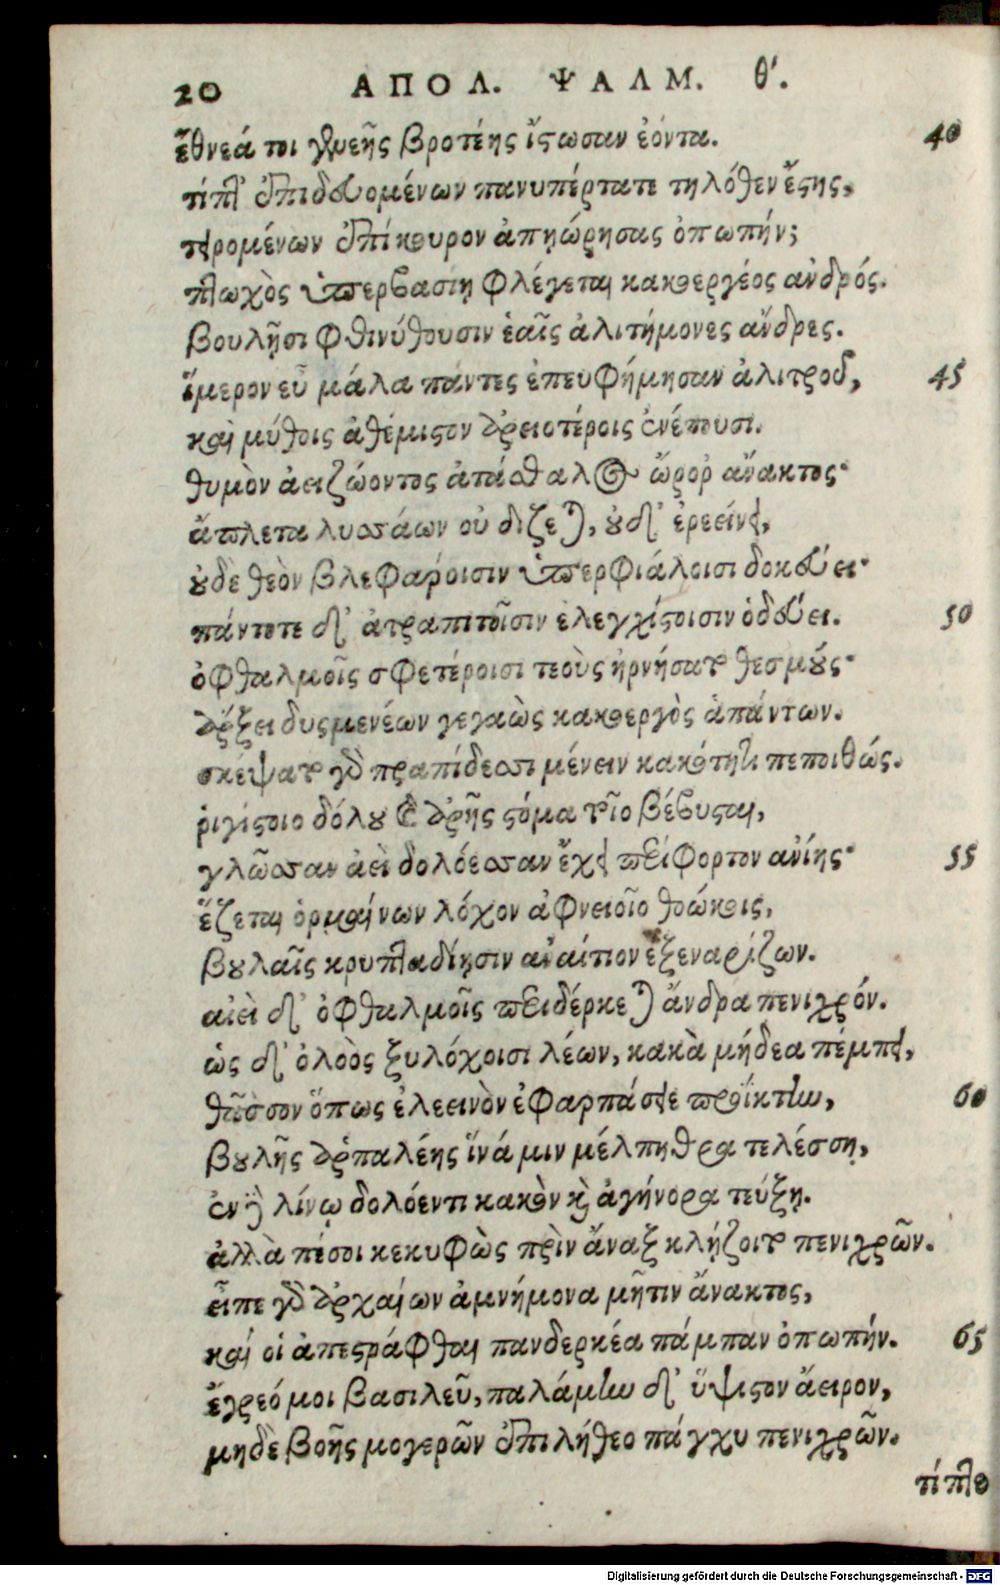 20 ΑΠΟΛ. ΨΑΛΜ. θ'.
ἔθνεά τοι γενεῆς βροτέης ἴστωσαν ἐόντα. 40
τίπτ' ἐπιδευομένων πανυπέρτατε τηλόθεν ἔστης,
τειρομένων ἐπίκουρον ἀπηώρησας ὀπωπήν;
πτωχὸς ὑπερβασίῃ φλέγεται κακοεργέος ἀνδρός.
βουλῇσι φθινύθουσιν ἑαῖς ἀλιτήμονες ἄνδρες.
ἵμερον εὖ μάλα πάντες ἐπευφήμησαν ἀλιτροῦ, 45
καὶ μύθοις ἀθέμιστον ἀρειοτέροις ἐνέπουσι.
θυμὸν ἀειζώοντος ἀτάσθαλος ὤρορ ἄνακτος·
ἄπλετα λυσσάων οὐ δίζεται, οὐδ' ἐρεείνει,
οὐδὲ θεὸν βλεφάροισιν ὑπερφιάλοισι δοκεύει·
πάντοτε δ' ἀτραπιτοῖσιν ἐλεγχίστοισιν ὁδεύει. 50
ὀφθαλμοῖς σφετέροισι τεοὺς ἠρνήσατο θεσμούς·
ἄρξει δυσμενέων γεγαὼς κακοεργὸς ἁπάντων.
σκέψατο γὰρ πραπίδεσσι μένειν κακότητι πεποιθώς.
ῥιγίστοιο δόλου καὶ ἀρῆς στόμα τοῖο βέβυσται,
γλῶσσαν ἀεὶ δολόεσσαν ἔχει περίφορτον ἀνίης· 55
ἕζεται ὁρμαίνων λόχον ἀφνειοῖο θοώκοις,
βουλαῖς κρυπταδίῃσιν ἀναίτιον ἐξεναρίζων.
αἰεὶ δ' ὀφθαλμοῖς περιδέρκεται ἄνδρα πενιχρόν.
ὡς δ' ὀλοὸς ξυλόχοισι λέων, κακὰ μήδεα πέμπει,
θᾶσσον ὅπως ἐλεεινὸν ἐφαρπάσειε προΐκτην, 60
βουλῆς ἁρπαλέης ἵνά μιν μέλπηθρα τελέσσῃ,
ἐν δὲ λίνῳ δολόεντι κακὸν καὶ ἀγήνορα τεύξῃ.
ἀλλὰ πέσοι κεκυφὼς πρὶν ἄναξ κλῄζοιτο πενιχρῶν.
εἶπε γὰρ ἀρχαίων ἀμνήμονα μῆτιν ἄνακτος,
καί οἱ ἀπεστράφθαι πανδερκέα πάμπαν ὀπωπήν. 65
ἔγρεό μοι βασιλεῦ, παλάμην δ' ὕψιστον ἄειρον,
μηδὲ βοῆς μογερῶν ἐπιλήθεο πάγχυ πενιχρῶν.
τίπτε
Digitalisierung gefördert durch die Deutsche Forschungsgemeinschaft - DFG